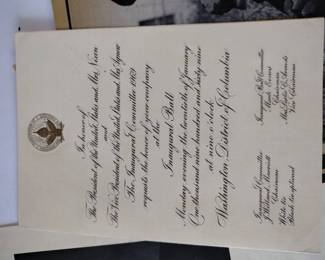 In honor of
The President of the United States and Mrs. Nixon
and
The Vice President of the United States and Mrs. Agnew
The Inaugural Committee 1969
requests the honor of your company
at the
Inaugural Ball
Monday evening the twentieth of January
One thousand nine hundred and sixty nine
at nine o'clock
Washington, District of Columbia
Inaugural Committee
J. Willard Marriott
Chairman
White tie
Black tie optional
Inaugural Ball Committee
Mark Evans
Chairman
Mrs.
Vice Chairman